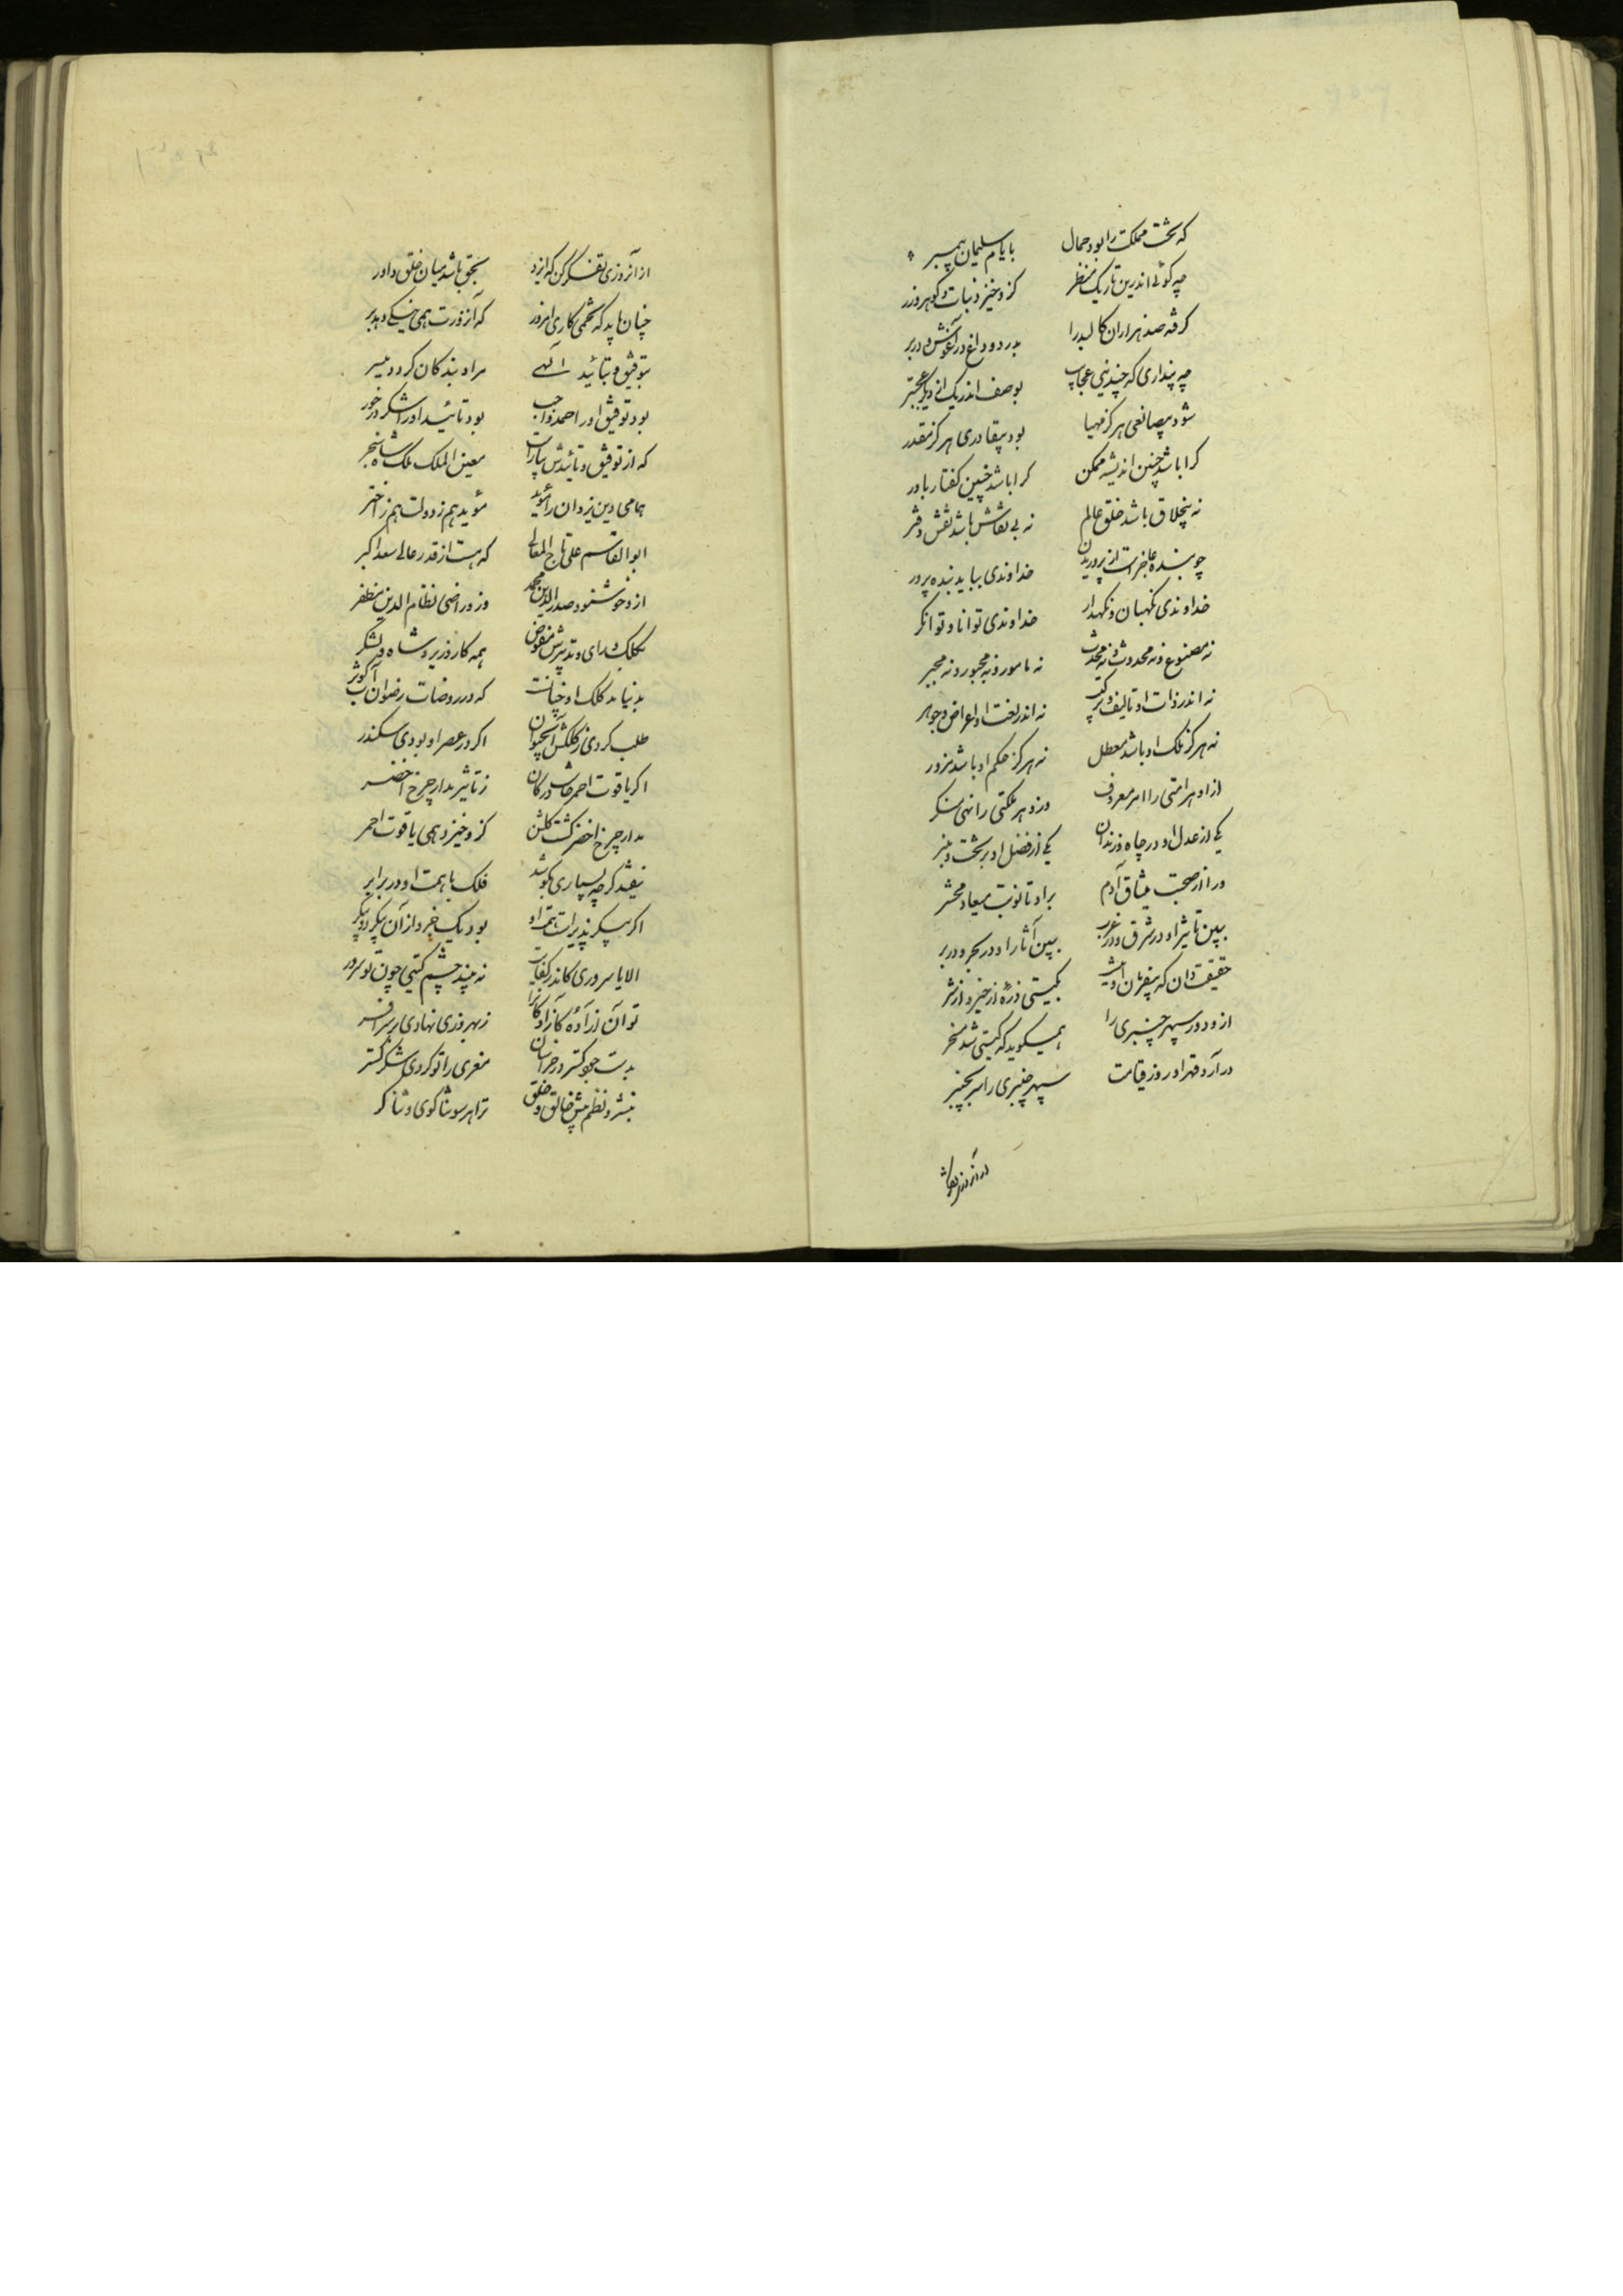 که تخت مملکت را بود جمال بایام سلیمان پیمبر
چه کوئی اندرین تاریک منظر کزو خیزد نبات و کوهر و زر
کرفه صد هزاران کالبد را بدرد و داغ در آغوش و در بر
چه پنداری که چندینی عجایب بوصف اندر یک از دیکر عجبتر
شود بیصانعی هرکز مهیا بود بیقادری هرکز مقدر
کرا باشد چنین اندیشه ممکن کرا باشد چنین کفتار باور
نه بیخلاق باشد خلق عالم نه بی نقاش باشد نقش دفتر
چو بنده عاجز است از پروریدن خداوندی بباید بنده پرور
خداوندی نکهبان و نکهدار خداوندی توانا و توانکر
نه مصنوع و نه محدوث و نه محدث نه مامور و نه مجبور و نه مجبر
نه اندر ذات او تالیف و ترکیب نه اندر نعت او اعراض و جوهر
نه هرکز ملک او باشد معطل نه هرکز حکم او باشد مزور
ازو هر امتی را امر معروف وزو هر ملتی را نهی منکر
یکی از عدل او در چاه و زندان یکی از فضل او بر تخت و منبر
ورا از صحبت میثاق آدم براو تا نوبت میعاد محشر
ببین تاثیر او در شرق و در غرب ببین آثار او در بحر و در بر
حقیقت دان که بیفرمان او نیست بکیتی ذرهٔ از خیر و از شر
ازو دور سپهر چنبری را همیکوید که کیتی شد مسخر
درآرد قهر او روز قیامت سپهر چنبری را سر بچنبر
از آنروزی
از آنروزی تفکر کن که ایزد بحق باشد میان خلق داور
چنان باید که تخمی کاری امروز که آنروزت همی نیکی دهد بر
بتوفیق و بتائید الهی مراد بندکان کردد میسر
بود توفیق اورا حمد واجب بود تائید اورا شکر درخور
که از توفیق و تائیدش بیاراست معین الملک ملک شاه سنجر
همامی دین یزدان را مؤید مؤید هم ز دولت هم ز اختر
ابوالقاسم علی تاج المعالی که هست از قدر عالی سعد اکبر
ازو خوشنود صدرالدین محمد وزو راضی نظام الدین مظفر
بکلک و رای و تدبیرش مفوض همه کار وزیر و شاه و لشکر
بدنیا مد کلک او چنانست که در روضات رضوان آب کوثر
طلب کردی ز کلکش آب حیوان اکر در عصر او بودی سکندر
اکر یاقوت احمر خاست در کان ز تاثیر مدار چرخ اخضر
مدار چرخ اخضر کشت کلکش کزو خیزد همی یاقوت احمر
نیفتد کرچه بسیاری بکوشد فلک با همت او در برابر
اکر پیکر پذیراست همت او بود یک جزو از آن پیکر دو پیکر
الا یا سروری کاندر کفایت نه بیند چشم کیتی چون تو سرور
تو آن آزادهٔ کازادکان را ز بهروزی نهادی بر سر افسر
بدست جود کستر در خراسان معزی را تو کردی شکر کستر
بنثر و نظم پیش خالق و خلق ترا هر سو ثنا کوی و ثنا کر